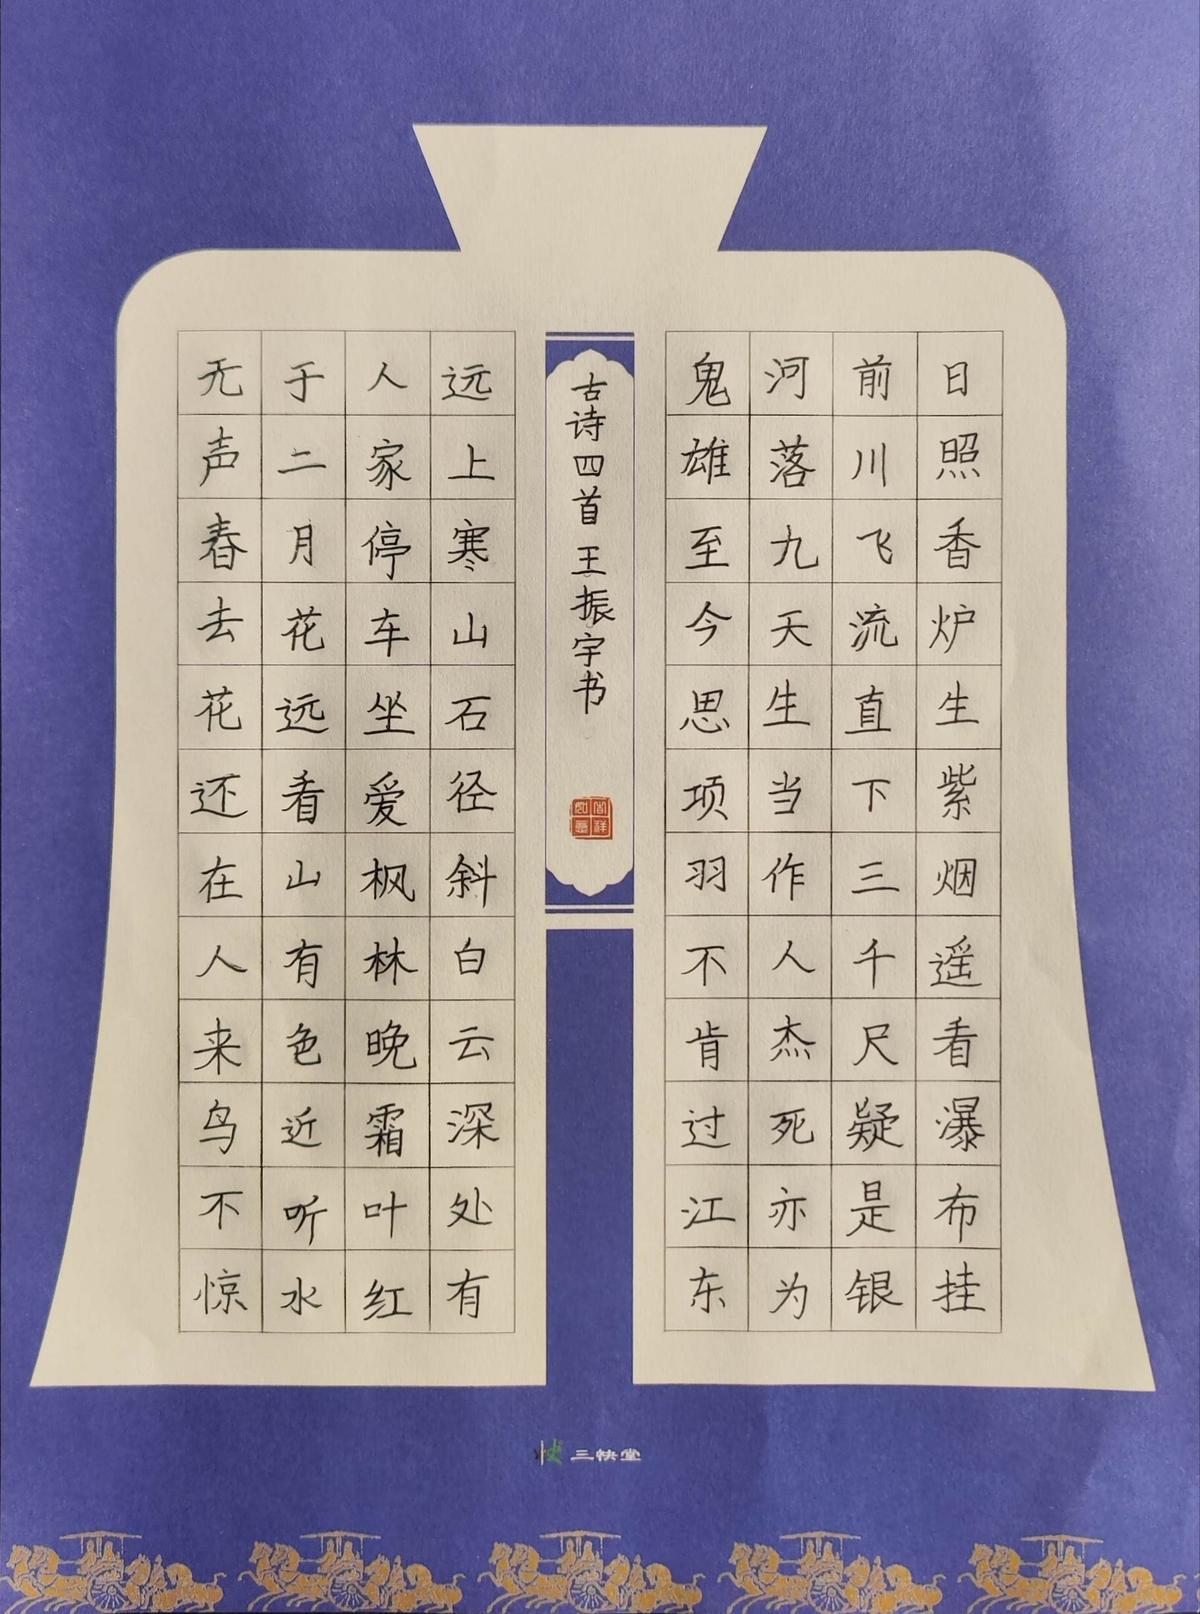 日照香炉生紫烟遥看瀑布挂
前川飞流直下三千尺疑是银
河落九天生当作人杰死亦为
鬼雄至今思项羽不肯过江东
古诗四首 王振宇书
吉祥如意
远上寒山石径斜白云深处有
人家停车坐爱枫林晚霜叶红
于二月花远看山有色近听水
无声春去花还在人来鸟不惊
三快堂